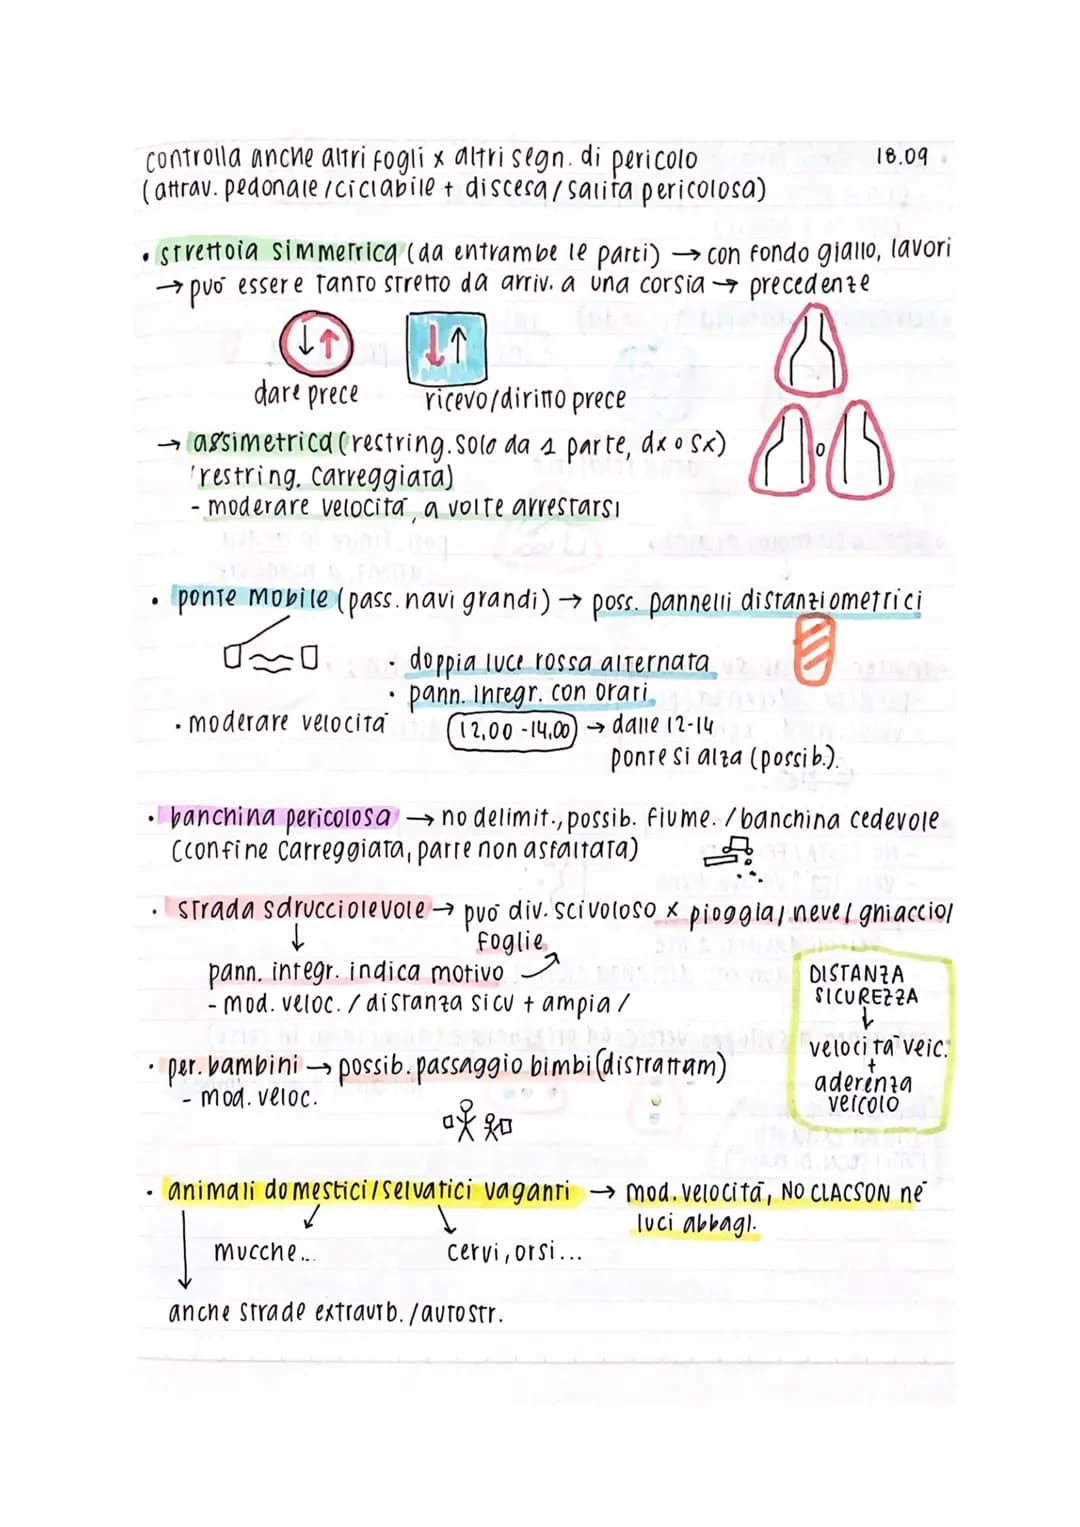 controlla anche altri fogli x altri segn. di pericolo 18.09
(attrav. pedonale/ciclabile + discesa/salita pericolosa)
• strettoia simmetrica (da entrambe le parti) → con fondo giallo, lavori
→ può essere tanto stretto da arriv. a una corsia → precedenze
↓↑ ↓↑
dare prece ricevo/diritto prece
→ assimetrica (restring. solo da 1 parte, dx o sx) o
(restring. carreggiata)
- moderare velocità, a volte arrestarsi
• ponte mobile (pass. navi grandi) → poss. pannelli distanziometrici
• doppia luce rossa alternata
• pann. integr. con orari
• moderare velocità 12,00 - 14,00 → dalle 12-14
ponte si alza (possib.).
• banchina pericolosa → no delimit., possib. fiume. / banchina cedevole
(confine carreggiata, parte non asfaltata)
• strada sdrucciolevole → può div. scivoloso x pioggia/neve/ghiaccio/
↓ foglie
pann. integr. indica motivo
- mod. veloc. / distanza sicu + ampia /
DISTANZA
SICUREZZA
↓
velocità veic.
+
aderenza
veicolo
• per. bambini → possib. passaggio bimbi (distrattam)
- mod. veloc.
• animali domestici/selvatici vaganti → mod. velocità, NO CLACSON nè
luci abbagl.
mucche... cervi, orsi...
anche strade extraurb. /autostr.